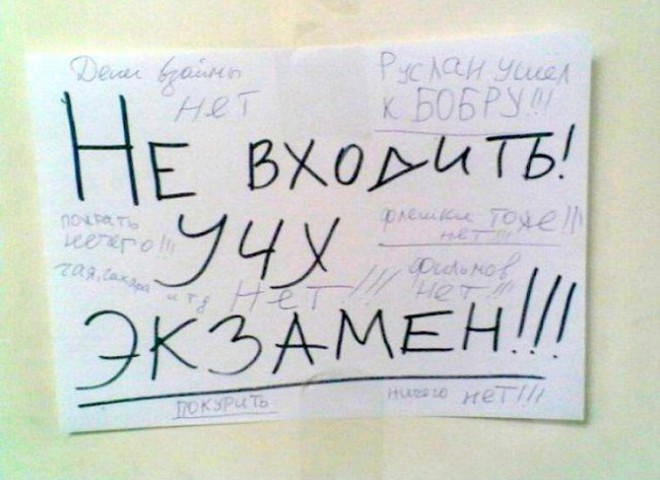 Денег взаймы
нет
Руслан ушел
к БОБРУ!!!
НЕ ВХОДИТЬ!
пожрать
нечего!!!
УЧУ
флешки тоже!!!
нет!!!
чая, сахара и т д НЕТ!!!
фильмов
нет!!!
ЭКЗАМЕН!!!
ПОКУРИТЬ
ничего нет!!!